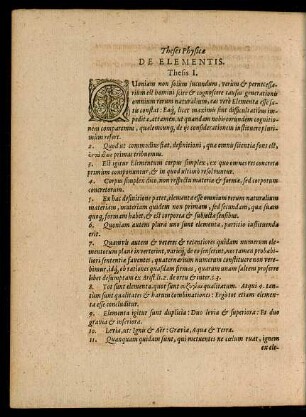 Theses Physicæ
DE ELEMENTIS.
Thesis I.
QVoniam non solùm iucundum, verùm & pernecessa-
rium est homini scire & cognoscere causas generationis
omnium rerum naturalium, eas verò Elementa esse sa-
tis constat: Eaq́; licet maximis sint difficultatibus im-
pedita, attamen, ut quandam nobis eorundem cognitio-
nem comparemus, qualemcunq; de ijs considerationem in-
refert.
2. Quod ut commodius fiat, definitioni, qua omnis scientia
primas tribuemus.
3. Est igitur Elementum corpus simplex, ex quo omnes res concretæ
primùm componuntur, & in quod ultimò resolvuntur.
4. Corpus simplex dico, non respectu materiæ & formæ, sed corporum
concretorum.
5. Ex hac definitione patet, elementa esse omnium rerum naturalium
materiam, materiem quidem non primam, sed secundam, quæ suam
quoq; formam habet, & est corporea & subiecta sensibus.
6. Quoniam autem plura uno sunt elementa, partitio instituenda
erit.
7. Quamvis autem & veteres & recentiores quidam numerum elem-
mentorum planè in vertерint,
biles sententiæ faventes, quaternarium numerum constituere non vere-
bimur, idq́; ob rationes quasdam firmas, quarum unam saltem proferre
libet desumptam ex Aristot. 2. de ortu & inter. t. 3.
8. Tot sunt elementa, quot sunt qualitates. Atqui 4. tan-
tum sunt qualitates & harum combinationes: Ergo tot etiam elemen-
ta esse concluditur.
9. Elementa igitur sunt duplicia: Duo levia & superiora: Et duo
gravia & inferiora.
10. Levia, ut: Ignis & Aër: Gravia, Aqua & Terra.
11. Quanquam quidam sunt, qui metuentes ne cœlum ruat, ignem
ex ele-